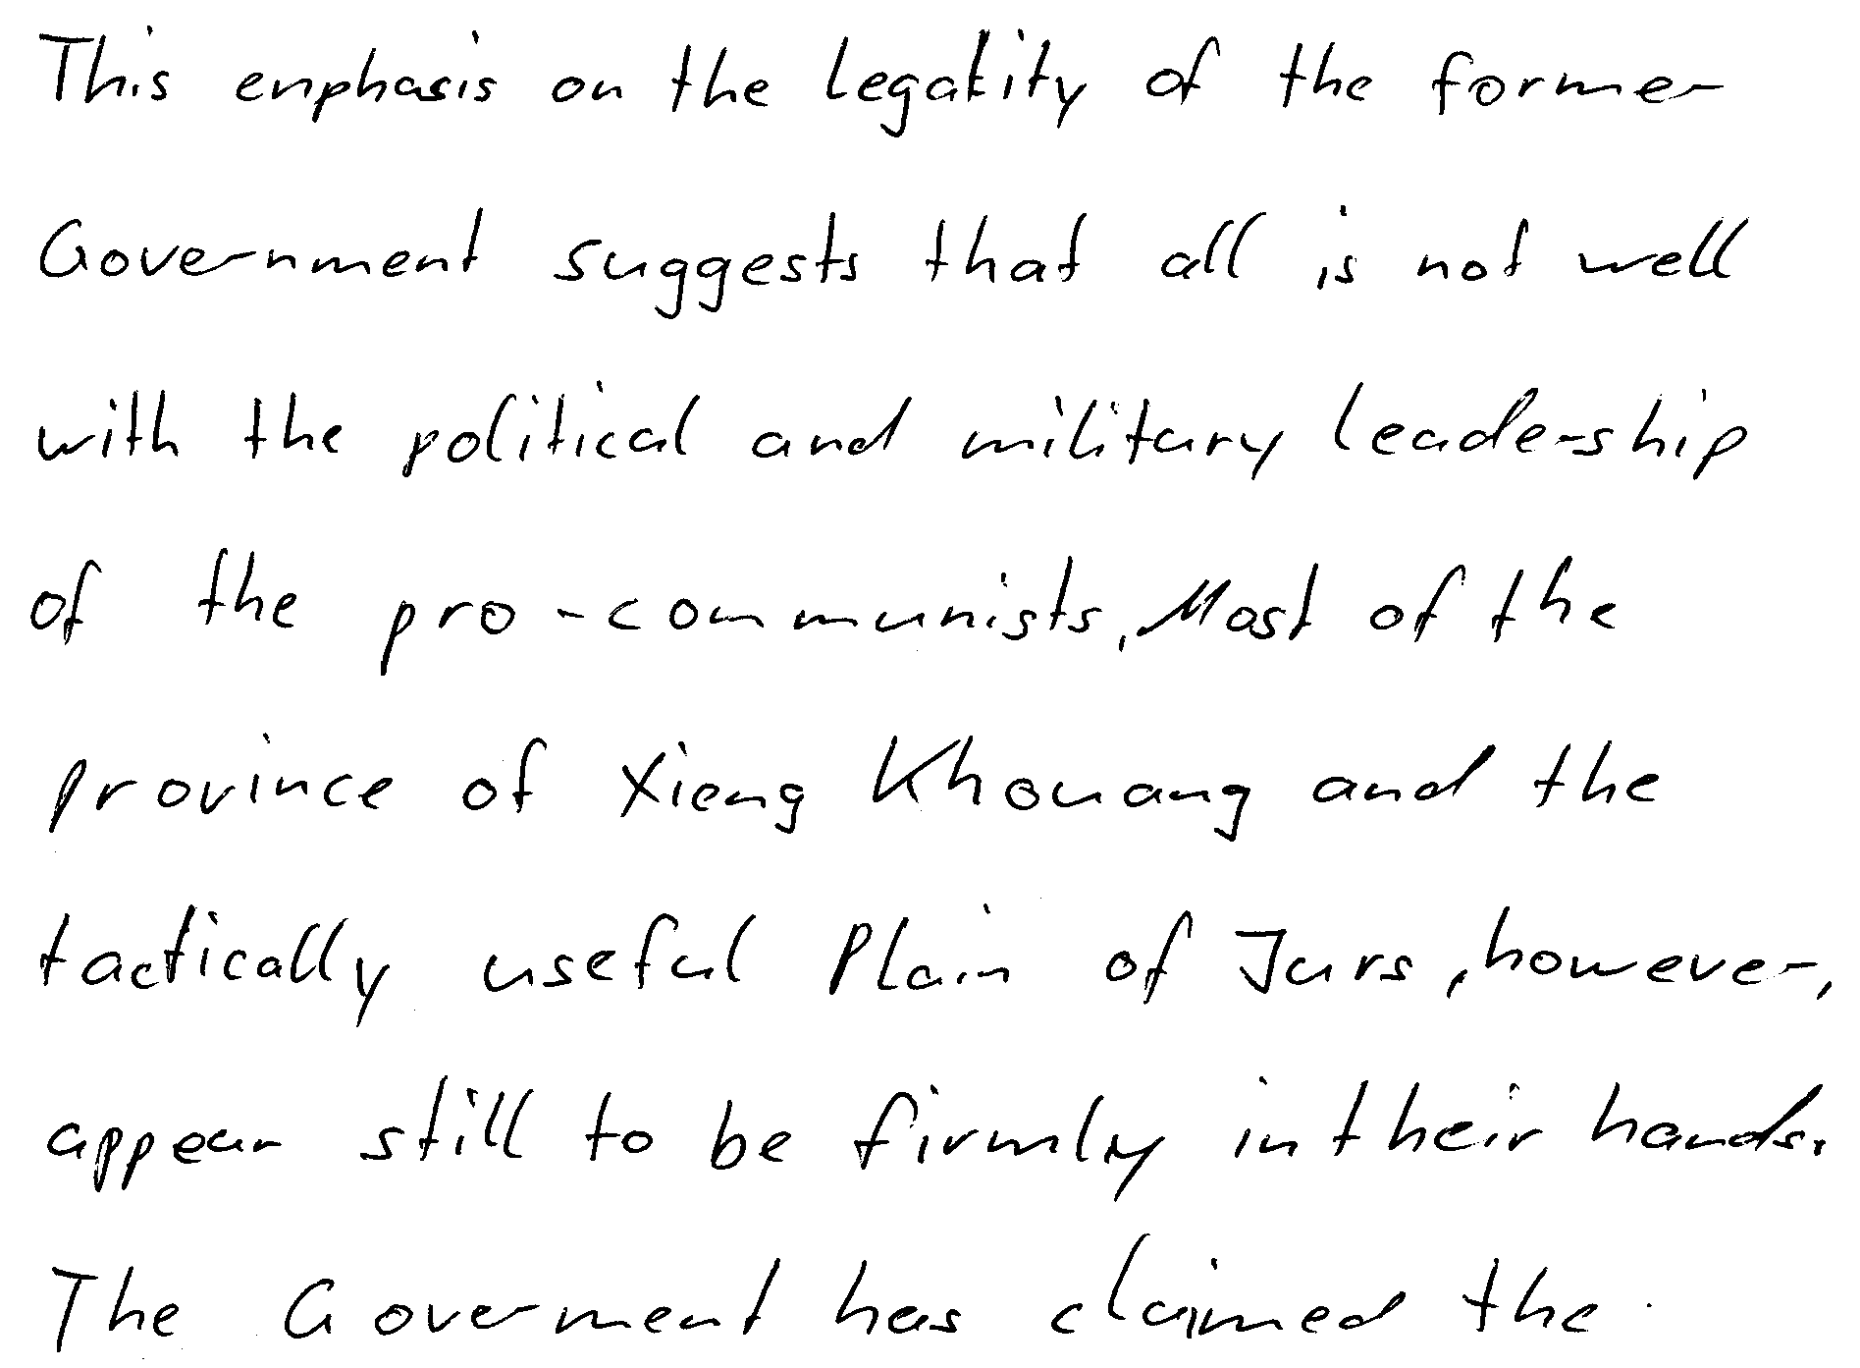 This enphasis on the legality of the former
Government suggests that all is not well
with the political and military leadership
of the pro-communists. Most of the
province of Xieng Khouang and the
tactically useful Plain of Jars, however,
appear still to be firmly in their hands.
The Goverment has claimed the